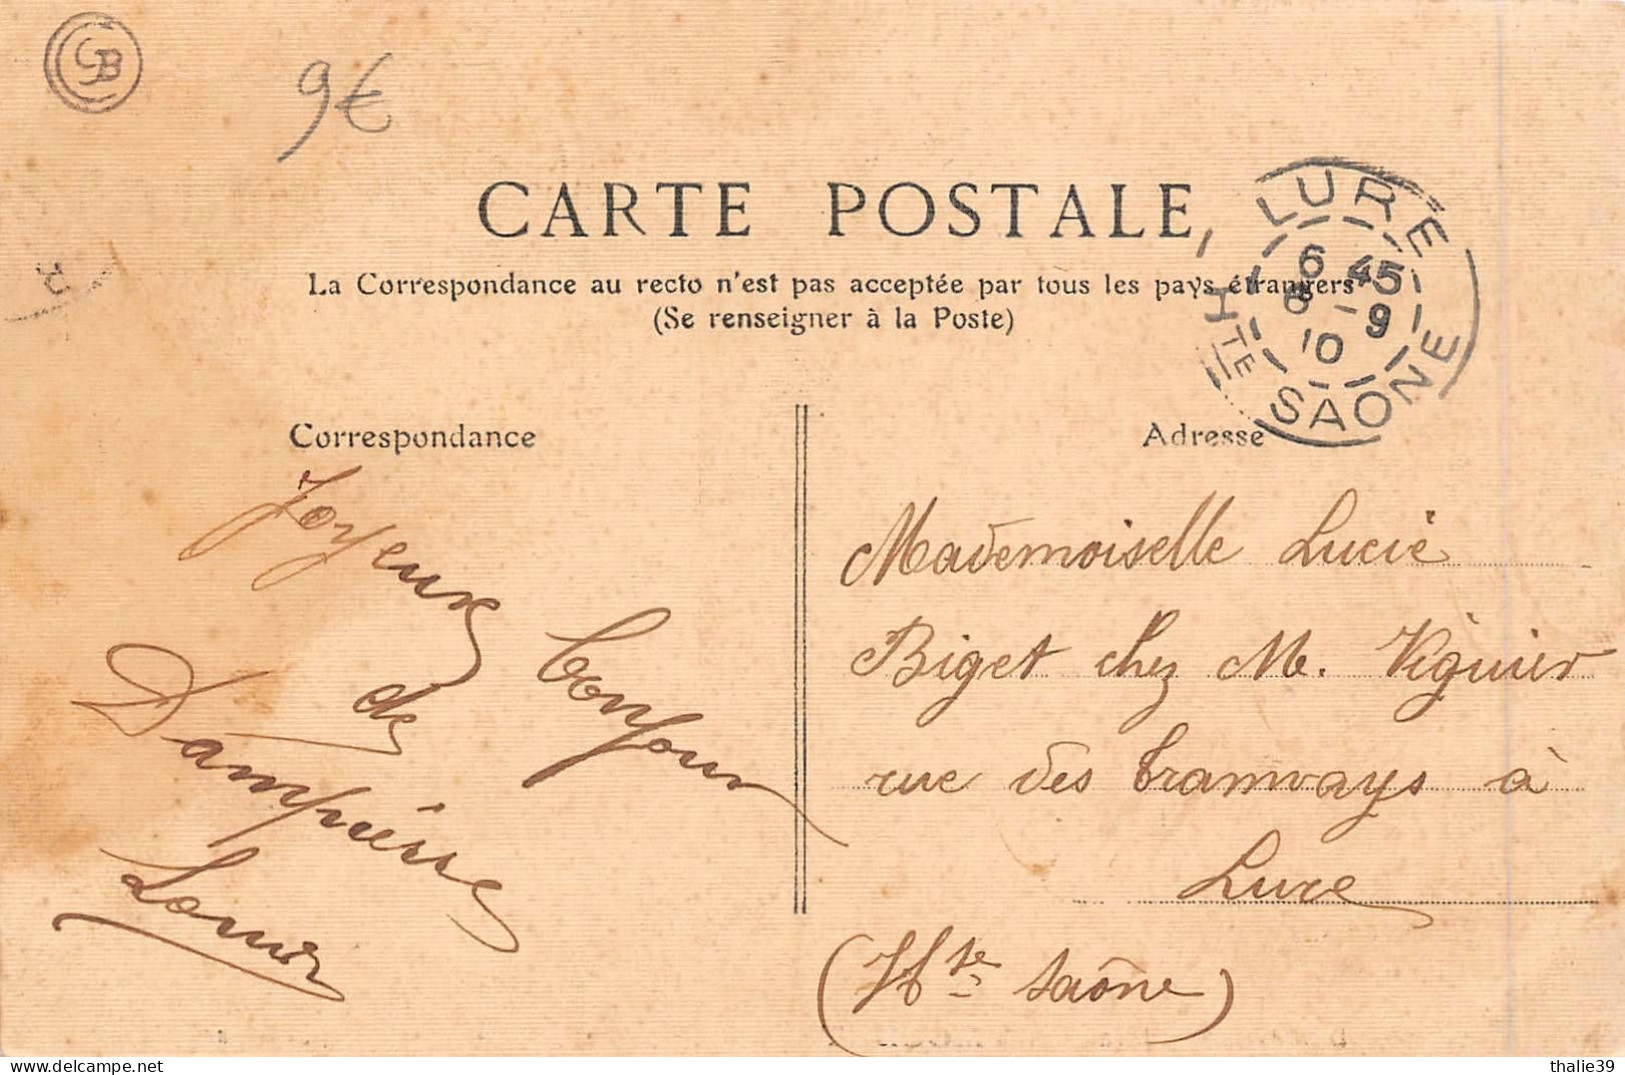 GB
9€
CARTE POSTALE
La Correspondance au recto n'est pas acceptée par tous les pays étrangers
(Se renseigner à la Poste)
LURE
6 45
6 - 9
10
HTE SAONE
Correspondance
Adresse
Joyeux
bonjour
de
Dampierre
Louis
Mademoiselle Lucie
Biget chez M. Viguier
rue des Tramways à
Lure
(Hte Saône)
thalie39